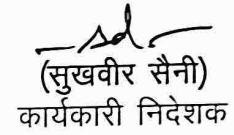 sd
(सुखवीर सैनी)
कार्यकारी निदेशक